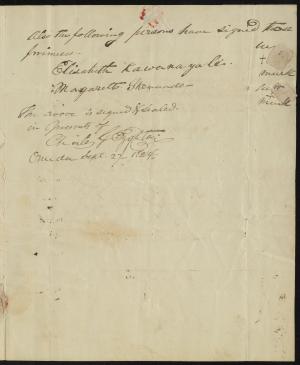 Also the following persons have signed these
promises.
her
Elizabeth +
mark
Margarett Skenando her
mark
The above is signed & sealed
in Presents of
Charles
Oneida Sept. 27 1824